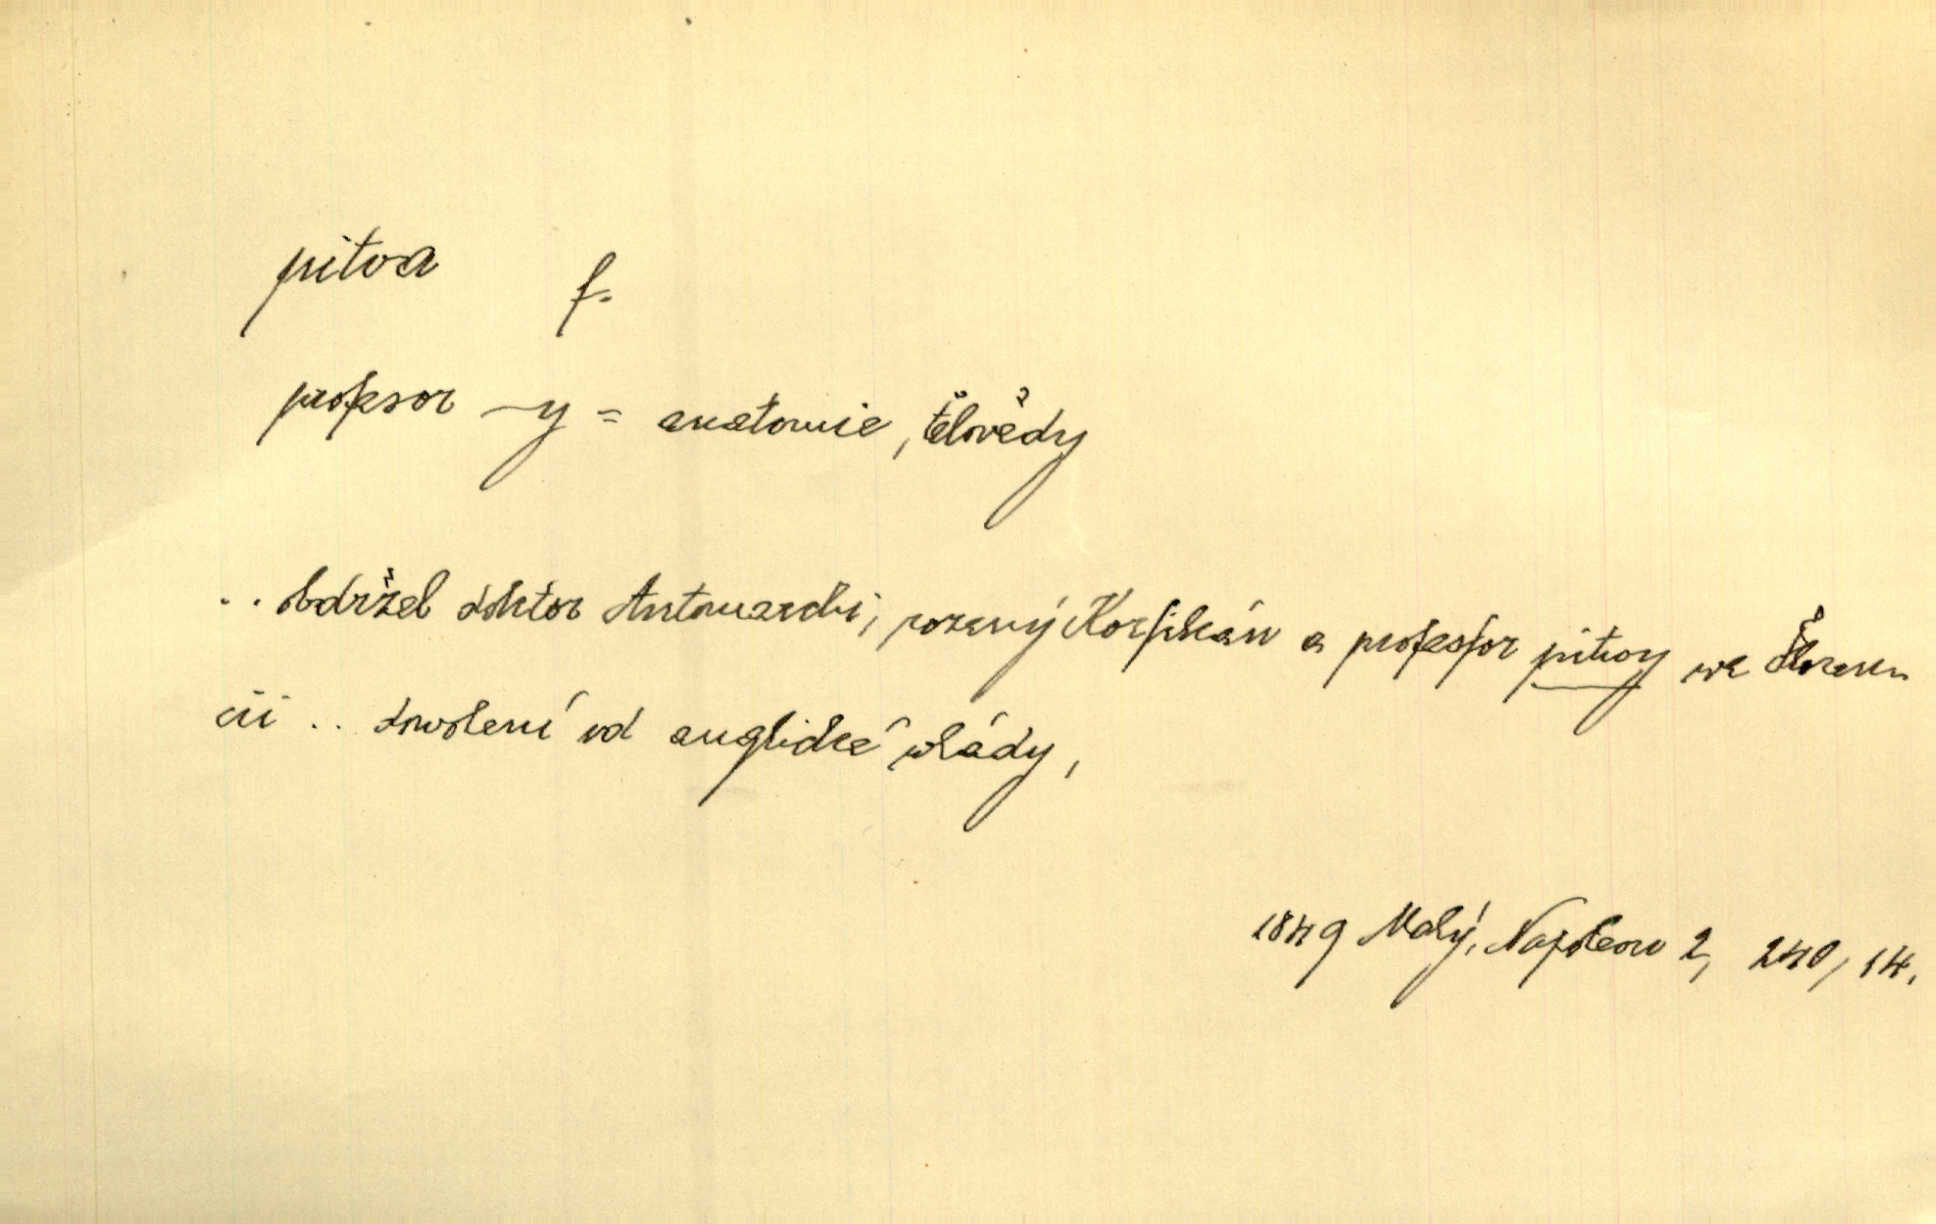 pitva f.
profesor –y = anatomie, tělovědy
.. obdržel doktor Antomarchi, rozený Korsikán a professor pitvy we Floren-
cii .. dowolení od anglické wlády,
1849 Malý, Napoleon 2, 240/14.